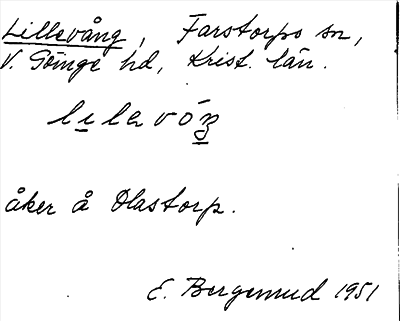 Lillevång, Farstorps sn,
V. Göinge hd, Krist. län.
åker å Olastorp.
E. Bergemud 1951